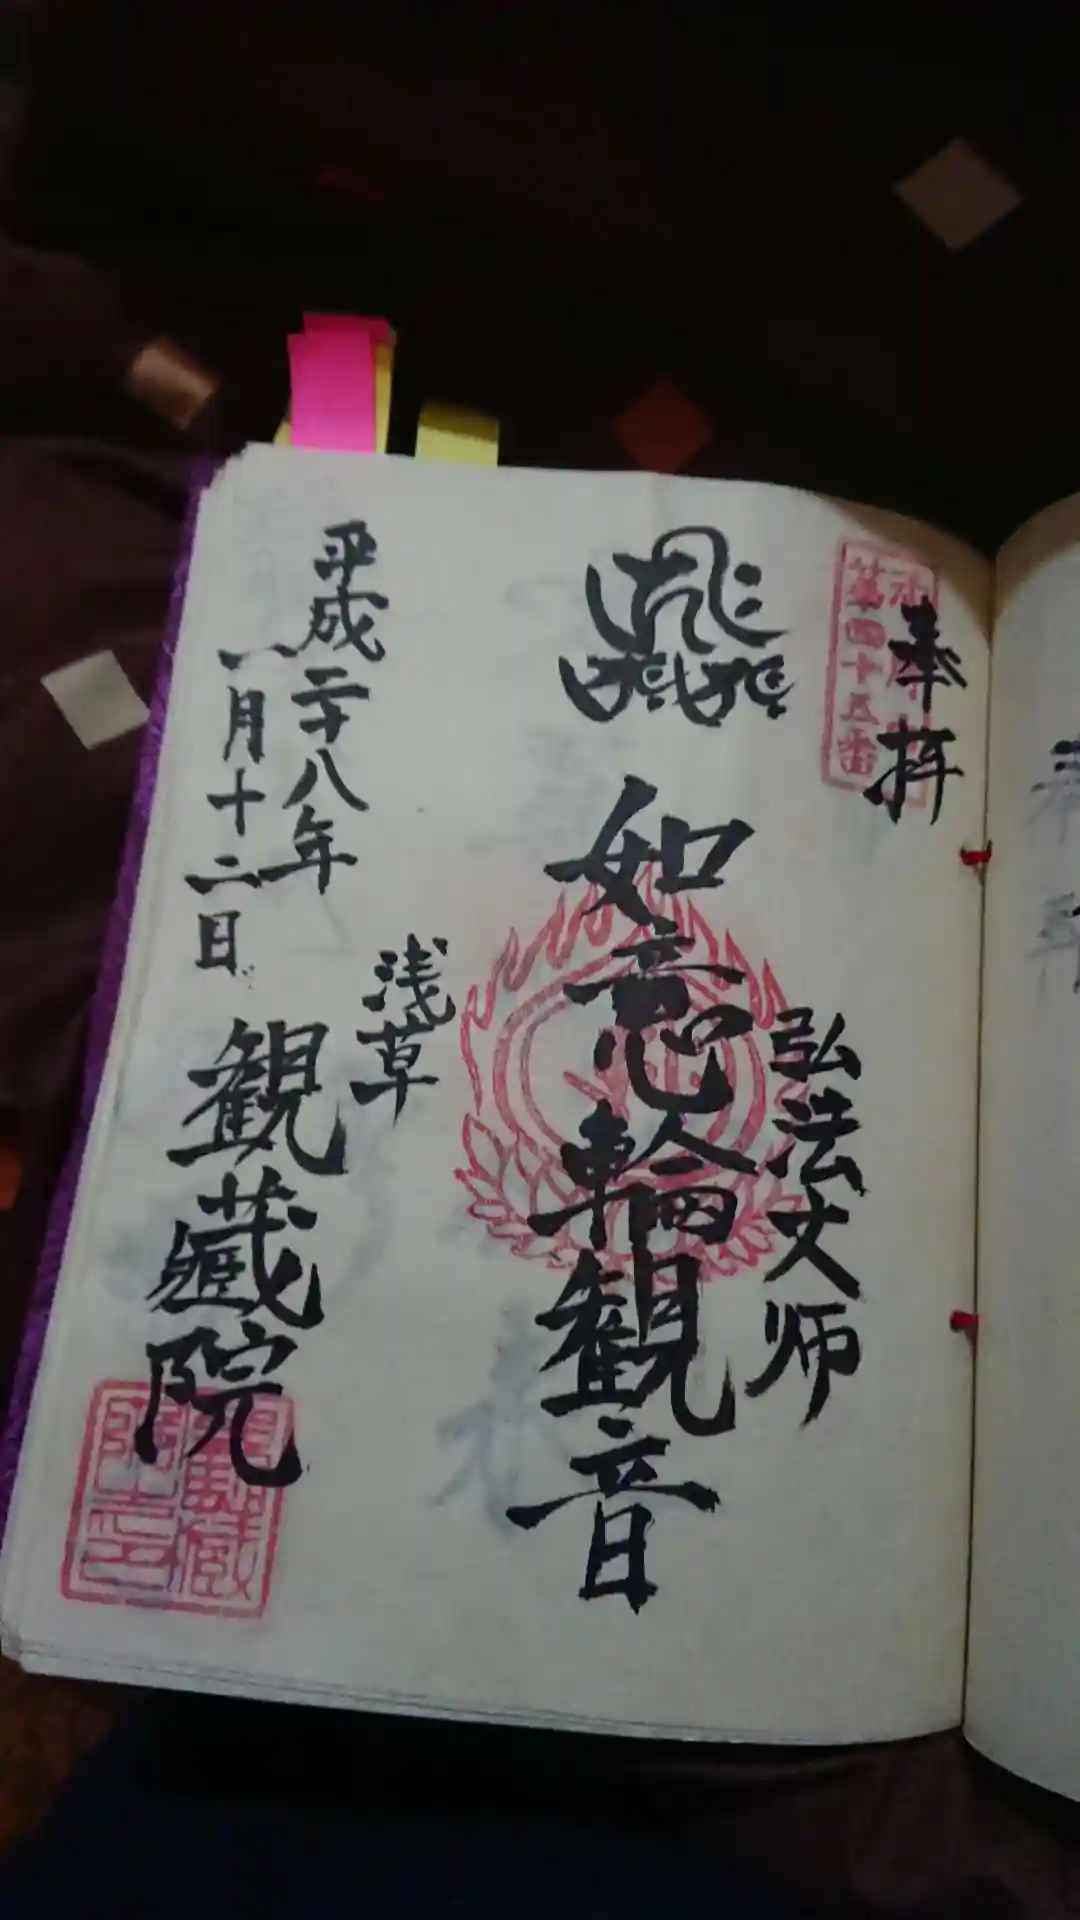 奉拝
第四十五番
弘法大师
如意輪観音
浅草
平成二十八年
八月十二日
観蔵院